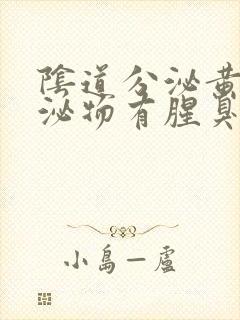 陰道分泌黄
泌物有腥臭
小島一盧